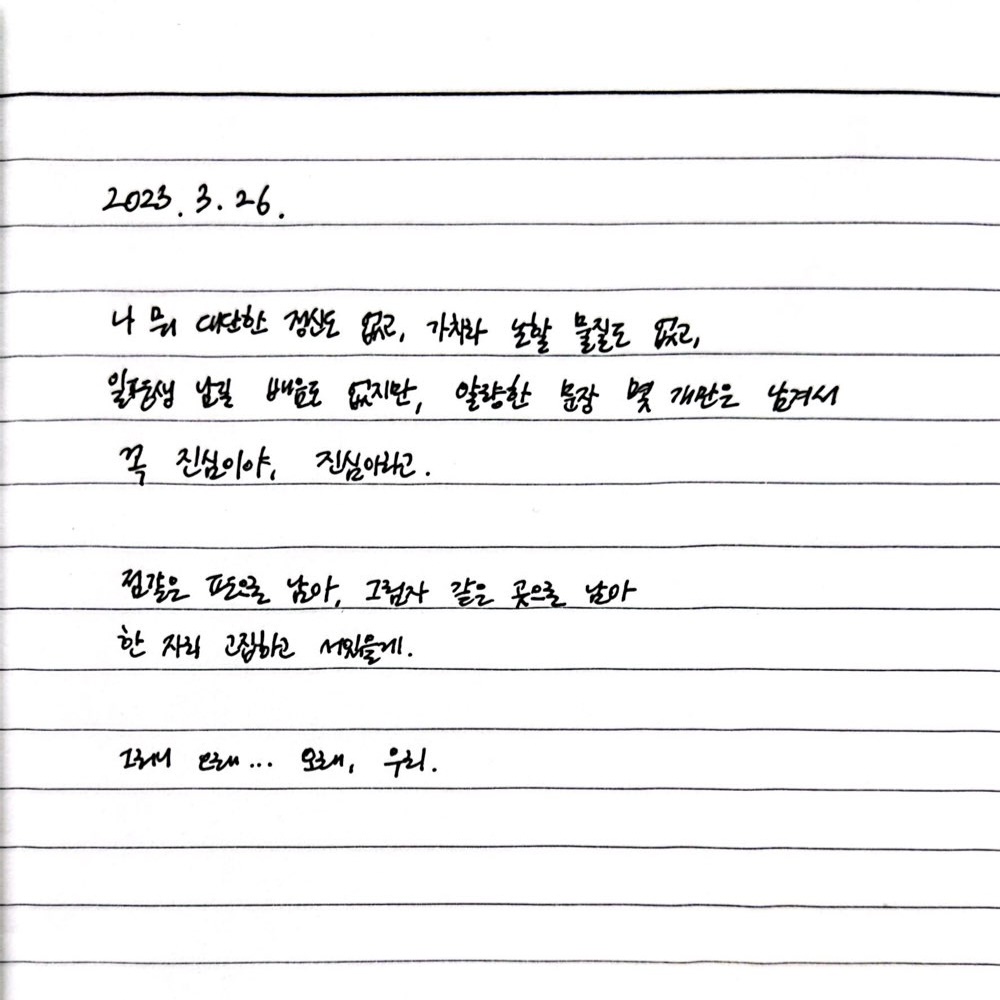 2023. 3. 26.
나 뭐 대단한 정신도 없고, 가치라 논할 물질도 없고,
일평생 남길 배움도 없지만, 알량한 문장 몇 개만은 남겨서
꼭 진심이야, 진심이라고.
점같은 표으로 남아, 그림자 같은 곳으로 남아
한 자리 고집하고 서있을게.
그래서 오래... 오래, 우리.